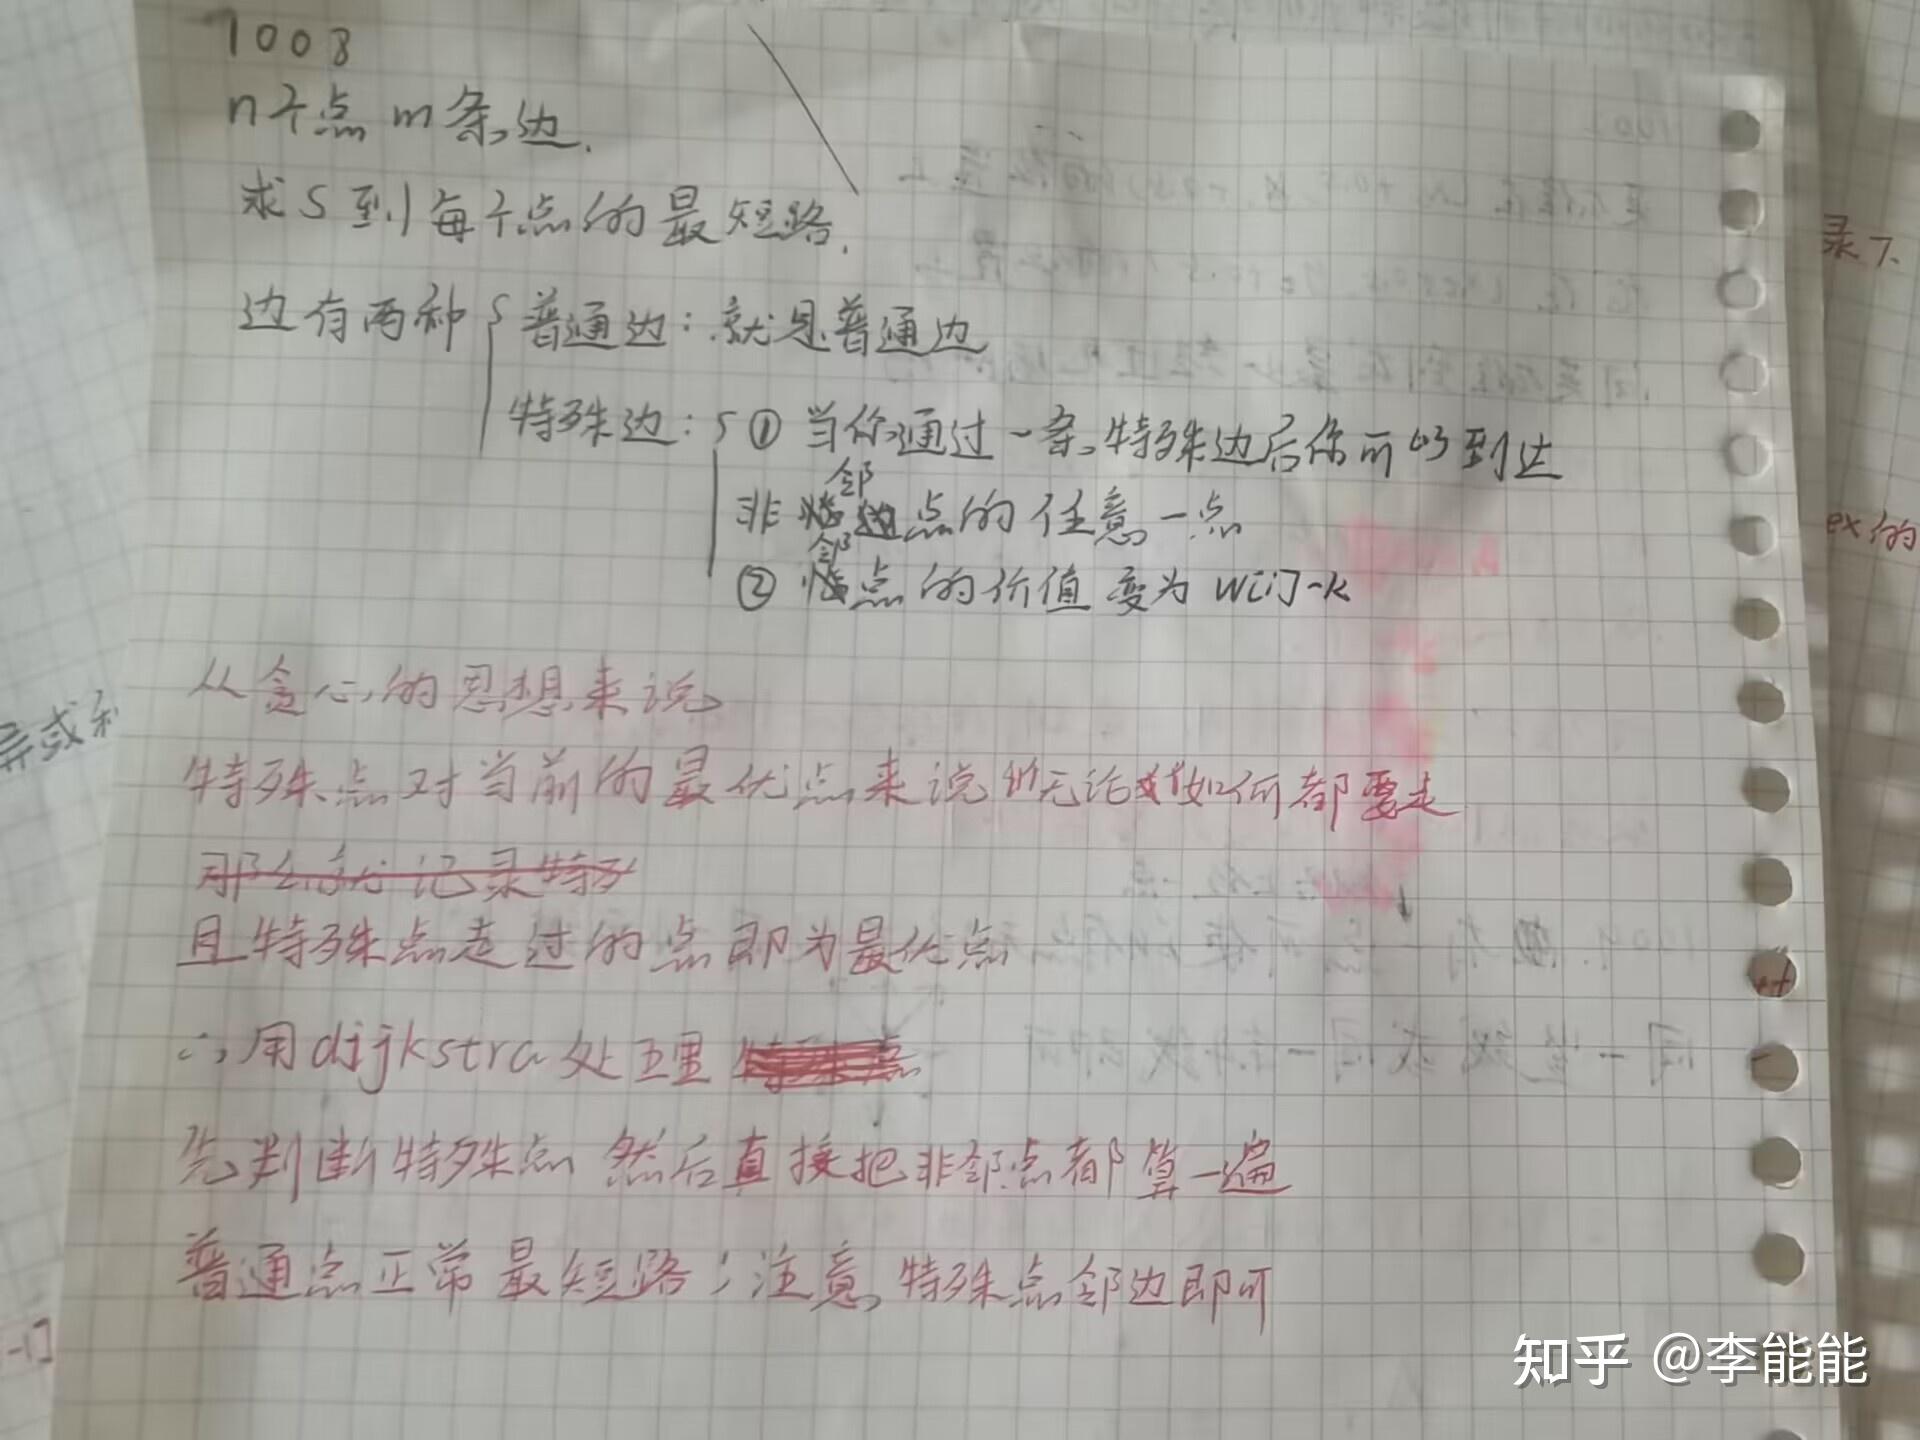 1008
n个点 m条边.
求S到每个点的最短路.
边有两种 { 普通边: 就是普通边
特殊边: { ① 当你通过一条特殊边后你可以到达
邻
非边点的任意一点
邻
② 点的价值变为 W[i]-k
从贪心的思想来说
特殊点对当前的最优点来说 无论如何都要走
那么 记录特
且特殊点走过的点即为最优点
∴用dijkstra处理 特殊点
先判断特殊点 然后直接把非邻点都算一遍
普通点正常最短路;注意特殊点邻边即可
录下
ex的
异或和
-1]
知乎 @李能能